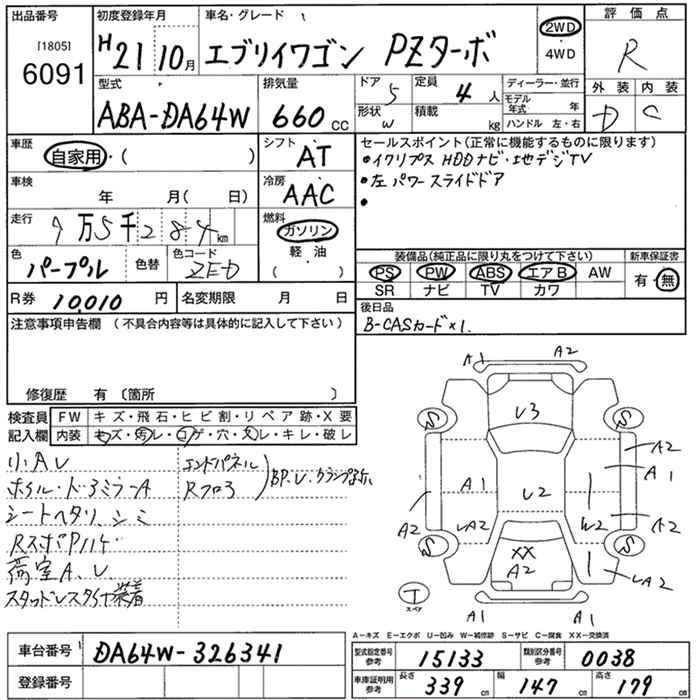 出品番号 初度登録年月 車名・グレード 評価点
[1805] 6091
H21 10月 エブリイワゴン PZターボ 2WD・4WD R
型式 排気量 ドア 5 定員 4人 ディーラー・並行 外装 内装
ABA-DA64W 660cc 形状 W 積載 kg モデル年式 年 D C
ハンドル 左・右
車歴 シフト セールスポイント(正常に機能するものに限ります)
自家用・( ) AT ・イクリプス HDDナビ・地デジTV
車検 冷房 ・左パワースライドドア
年 月( 日) AAC ・
走行 燃料
9万5千284km ガソリン 装備品(純正品に限り丸をつけて下さい) 新車保証書
色 色コード 軽・油 PS PW ABS エアB AW 有・無
パープル 色替 ZED ( ) SR ナビ TV カワ
R券 10,010円 名変期限 月 日 後日品
注意事項申告欄(不具合内容等は具体的に記入して下さい) B-CASカード×1.
修復歴 有〔箇所 〕
検査員 FW キズ・飛石・ヒビ割・リペア跡・X要
記入欄 内装 キズ・汚レ・コゲ・穴・スレ・キレ・破レ
小A.U エンドパネル
ホイル・ドアミラーA Rフロア
BP.U.クランプ跡
シートヘタリ、シミ
荷室A.U
スタッドレスタイヤ装着
A1 A2
S U3 S
A2
A1 A1
U2
A2 UA2 W2 A2
S XX A2 S
UA2
T スペア
A1 A1
A-キズ E-エクボ U-凹み W-補修跡 S-サビ C-腐食 XX-交換済
車台番号 DA64W-326341
型式指定番号 参考 15133 類別区分番号 参考 0038
登録番号
車庫証明用 参考 長さ 339cm 幅 147cm 高さ 179cm